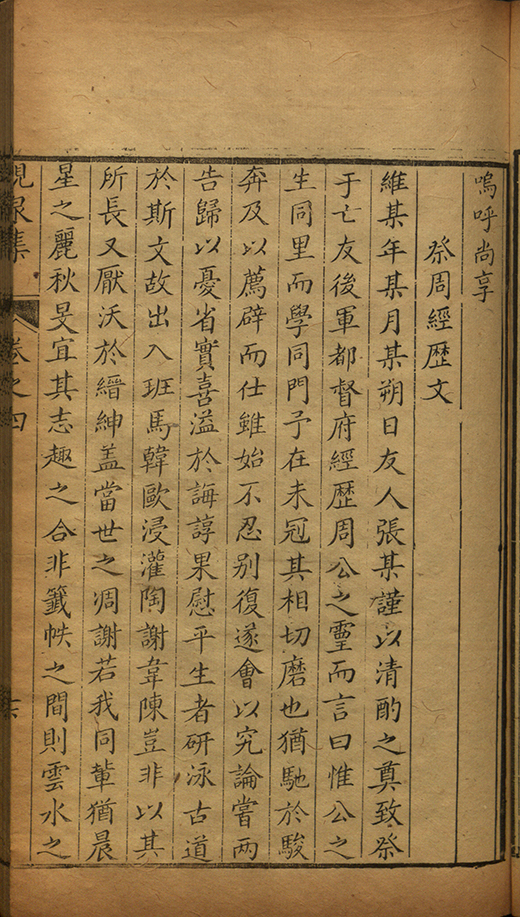 嗚呼尚享
祭周經歷文
維某年某月某朔日友人張某謹以清酌之奠致祭
于亡友後軍都督府經歷周公之靈而言曰惟公之
生同里而學同門予在未冠其相切磨也猶馳於駿
奔及以薦辟而仕雖始不忍別復遂會以究論當兩
告歸以憂省實喜溢於誨諄果慰平生者研泳古道
於斯文故出入班馬韓歐浸灌陶謝韋陳豈非以其
所長又厭沃於縉紳盖當世之凋謝若我同輩猶晨
星之麗秋旻宜其志趣之合非籤帙之間則雲水之
集 卷之四